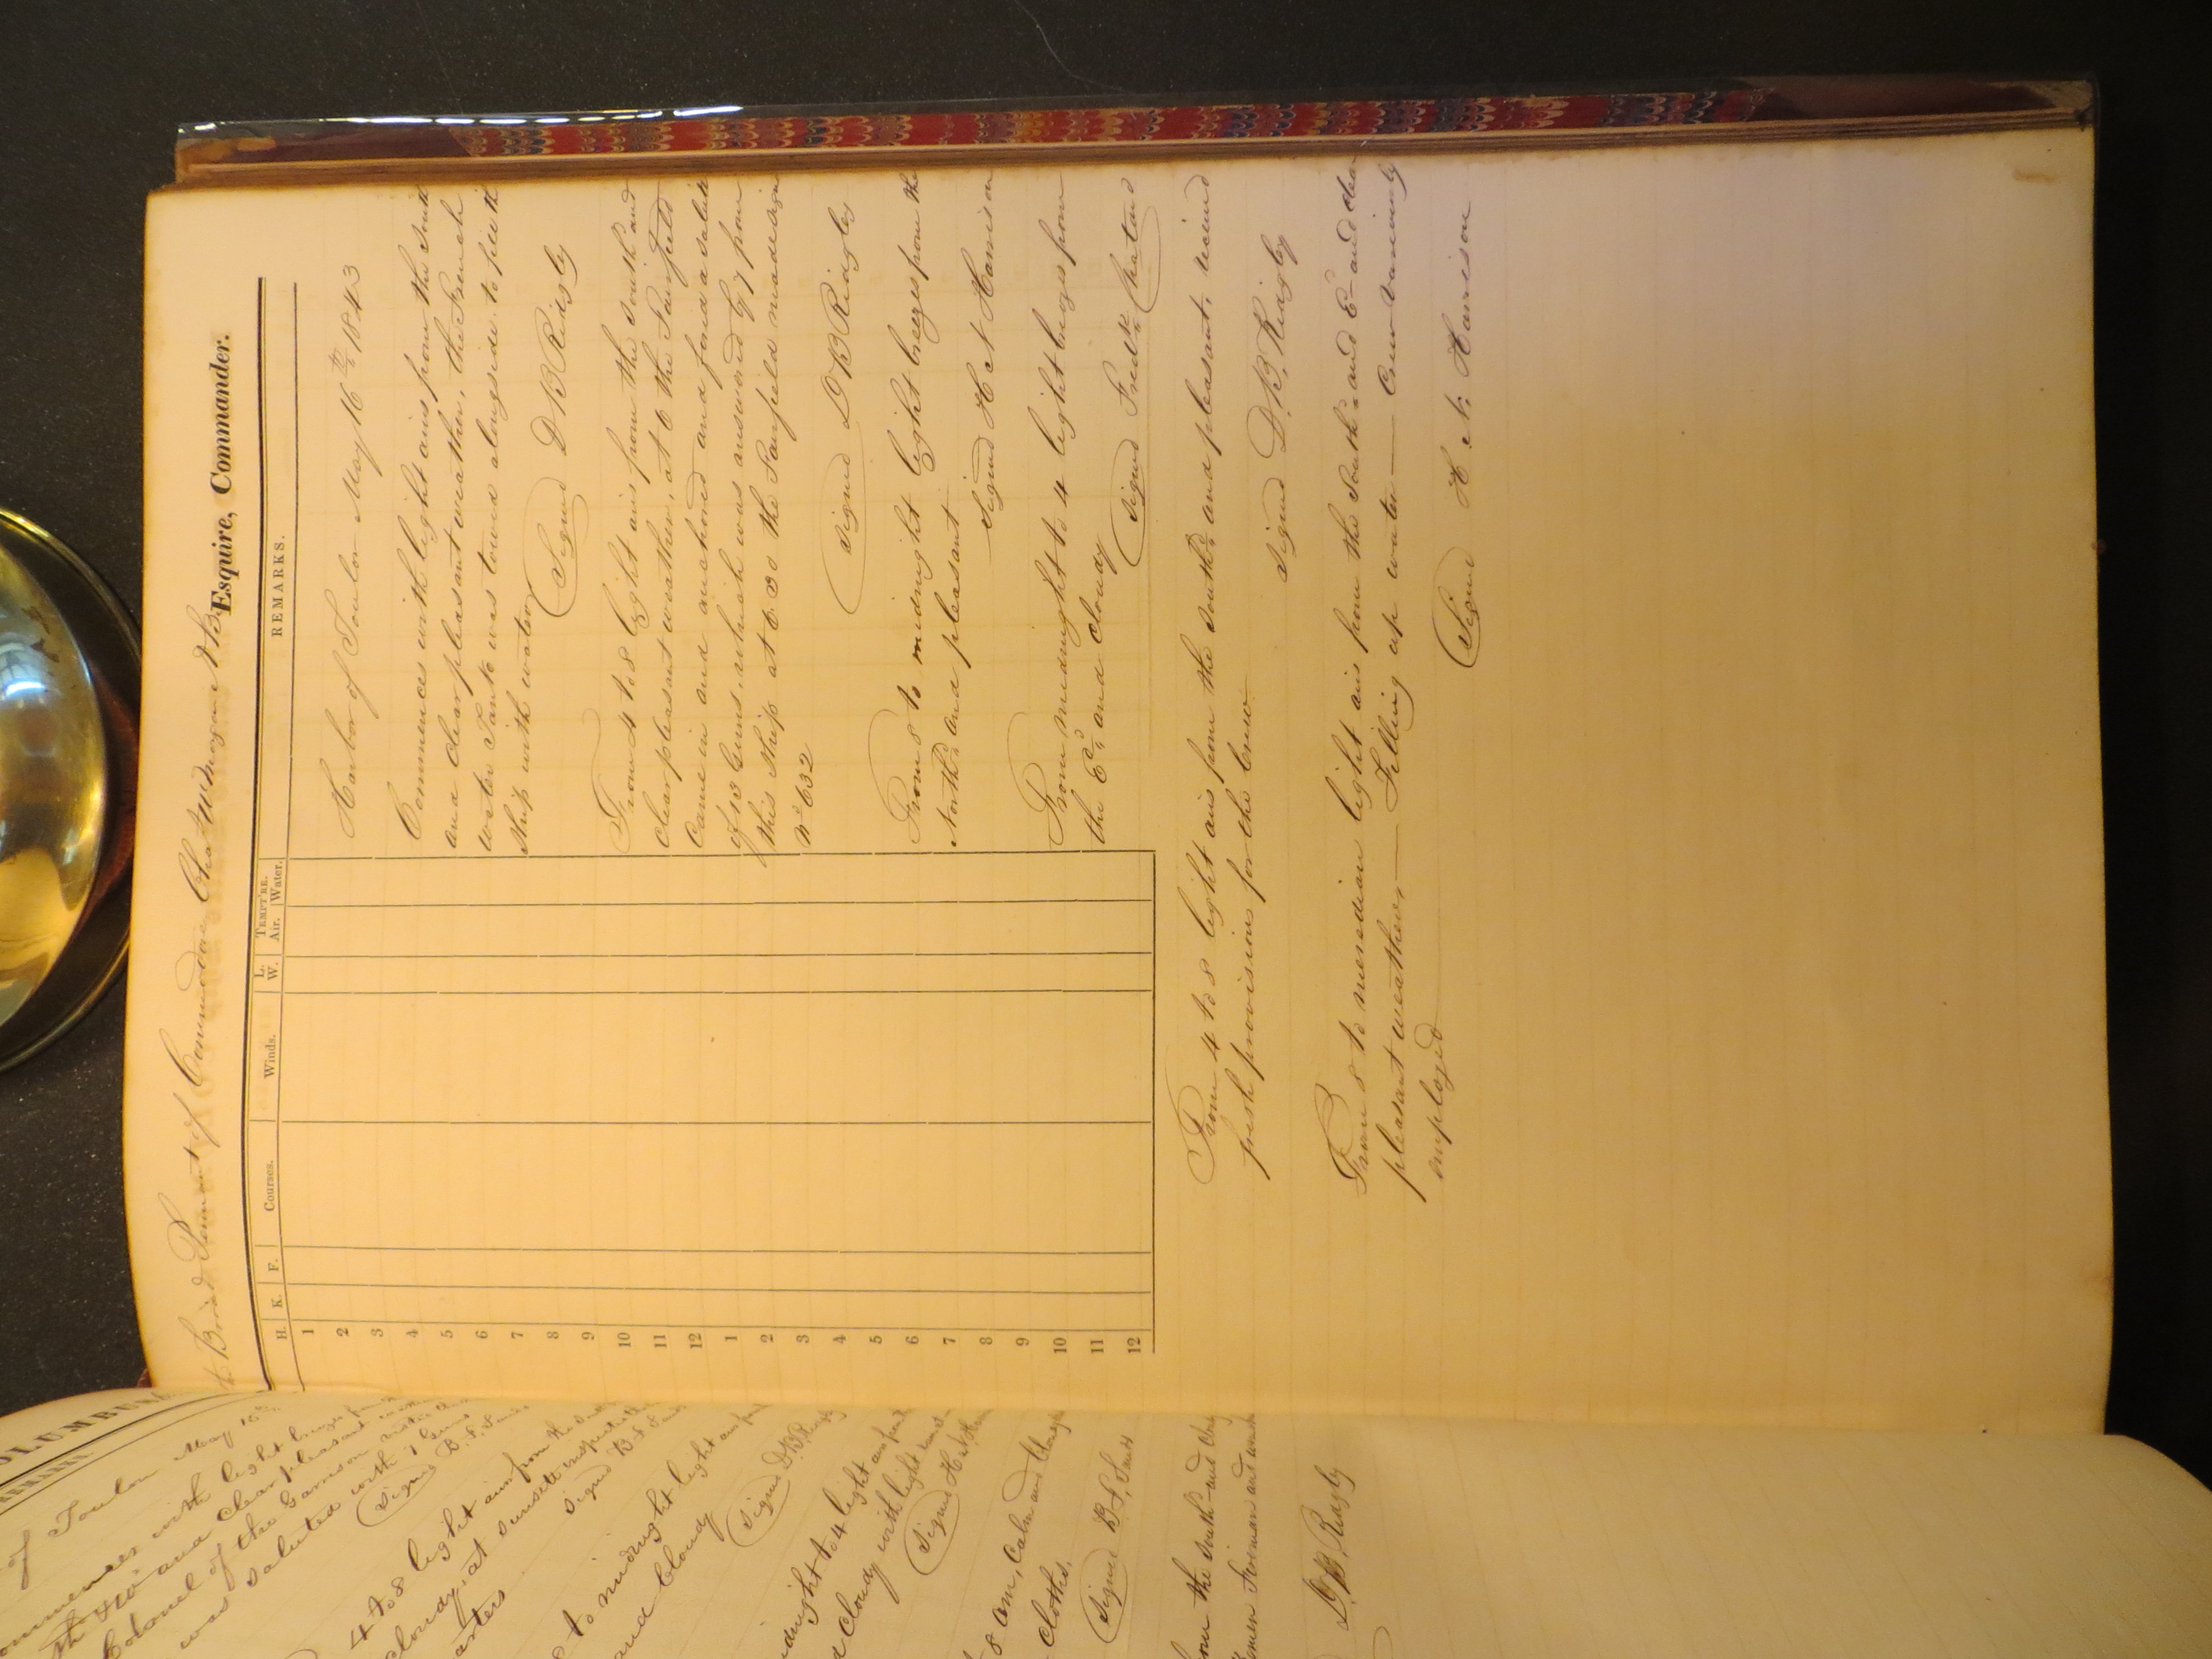 Broad Pennant of Commodore Chas W Morgan
Esquire, Commander.
H. K. F. Courses. Winds. L. W. TEMPT'RE. Air. Water. REMARKS.
1
2
3
4
5
6
7
8
9
10
11
12
1
2
3
4
5
6
7
8
9
10
11
12
Harbor of Toulon May 16th 1843
Commences with light airs from the South
and clear pleasant weather, the French
water Tank was towed alongside to fill the
Ship with water
Signed D B Ridgely
From 4 to 8 light airs from the South and
clear pleasant weather, at 6 the Fairfield
Came in and anchored and fired a salute
of 13 Guns, which was answered by 7 from
this Ship at 6 30 the Fairfield made sign
No 632
Signed D B Ridgely
From 8 to midnight light breezes from the
North and pleasant
Signed H N Harrison
From midnight to 4 light breezes from
the Ed and cloudy
Signed Fredk Chatard
From 4 to 8 light airs from the South and pleasant, received
fresh provisions for the Crew
Signed D. B. Ridgely
From 8 to meredian light airs from the South and E and clear
pleasant weather, — Filling up water — Crew variously
employed
Signed H. N. Harrison
COLUMBUS
REMARKS
of Toulon May 15th
Commences with light
and clear pleasant
Colonel of the Garrison visited
was saluted with 7 Guns
Signed B. F. Sands
4 to 8 light airs from the
cloudy, at Sunset inspected
Signed B F Sands
to midnight light airs
and cloudy
Signed D B Ridgely
midnight to 4 light airs
cloudy with light
Signed H N Harrison
8 am, Calm and
cloths.
Signed B. F. Sands
from the South and
D. B. Ridgely